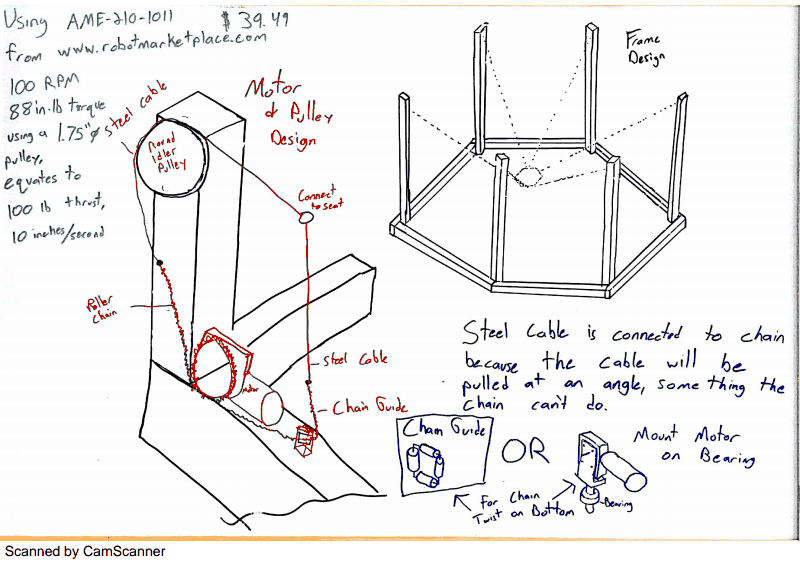 Using AME-210-1011 $39.49
from www.robotmarketplace.com
100 RPM
88 in-lb torque
using a 1.75"⌀
pulley,
equates to
100 lb thrust,
10 inches/second
Steel Cable
Motor
& Pulley
Design
Round
Idler
Pulley
Connect
to seat
Roller
Chain
motor
Steel Cable
Chain Guide
Frame
Design
Steel Cable is connected to chain
because the cable will be
pulled at an angle, something the
chain can't do.
Chain Guide
OR
Mount Motor
on Bearing
For Chain
Twist on Bottom
Bearing
Scanned by CamScanner